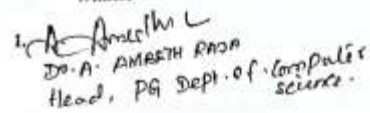 1.
Dr. A. AMBETH RAJA
Head, PG Dept. of Computer
science.